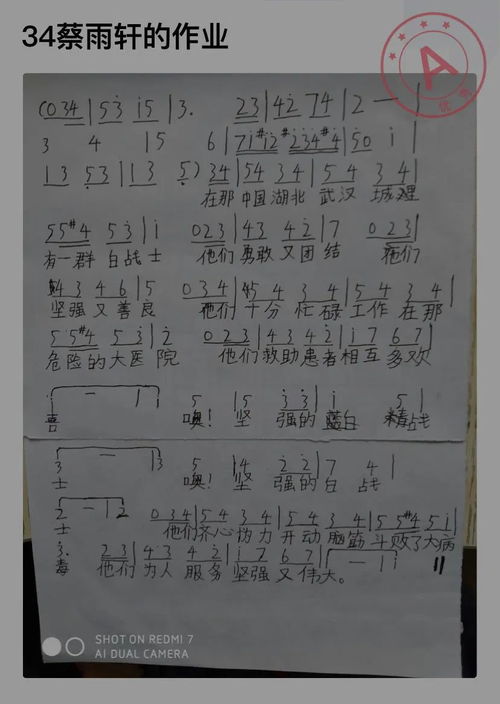 34蔡雨轩的作业
A
(0 34 | 53 i5 | 3. 23 | 42 74 | 2 — |
3 4 | 5 6 | 71#12#234#4 | 50 i |
13 53 | 13 5) 34 | 54 34 | 54 34 |
在那 中国 湖北 武汉 城里
55#4 53 | i 023 | 43 42 | 7 023 |
有一群 白战士 他们 勇敢 又团结 他们
34 46 | 5 034 | 54 34 | 54 34 |
坚强 又善良 他们 十分 忙碌 工作 在那
55#4 53 | 2 023 | 43 42 | i7 67 |
危险的大医院 他们 救助 患者 相互 多欢
i — | i 5 | 5 33 | i 5 |
喜 噢! 坚 强的 蓝白 精战
3 — | 3 5 | 4 22 | 7 4 |
士 噢! 坚 强的 白 战
2 — | 2 034 | 54 34 | 54 34 | 55#4 5i |
士 他们 齐心 协力 开动 脑筋 斗败了大病
3. 23 | 43 42 | i7 67 | i — | i
毒 他们 为人 服务 坚强 又伟大。
SHOT ON REDMI 7
AI DUAL CAMERA